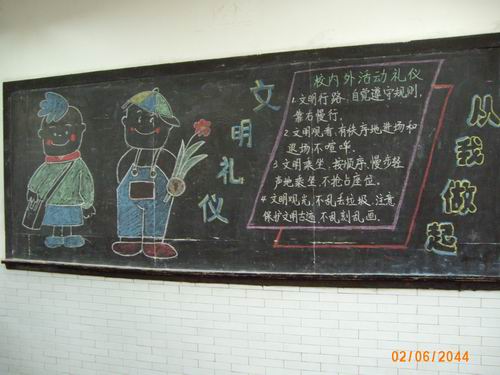 文明礼仪
校内外活动礼仪
1.文明行路,自觉遵守规则,
靠右慢行。
2.文明观看,有秩序地进场和
退场不喧哗。
3.文明乘坐,按顺序,慢步轻
声地乘坐,不抢占座位。
4.文明观光,不乱丢垃圾,注意
保护文明古迹,不乱刻乱画。
从我做起
02/06/2044